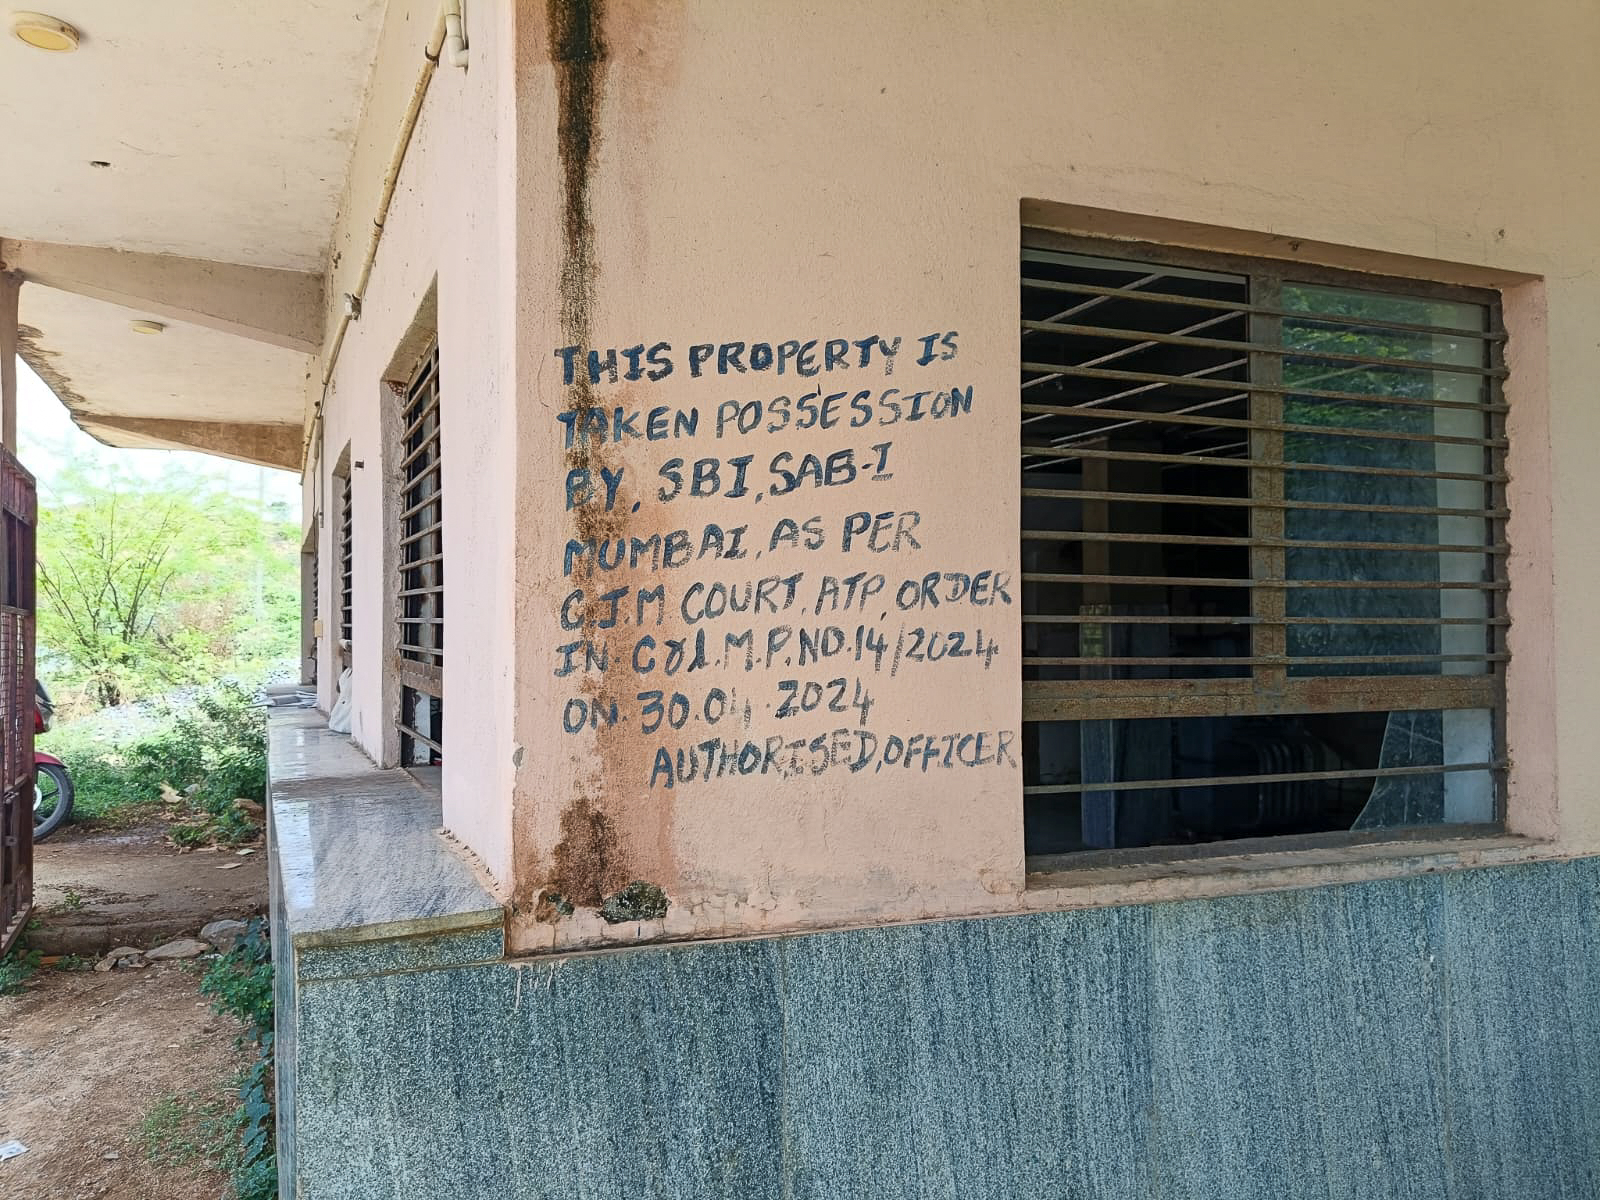 THIS PROPERTY IS
TAKEN POSSESSION
BY, SBI, SAB-I
MUMBAI, AS PER
C.J.M COURT, ATP, ORDER
IN. Crl.M.P.NO.14/2024
ON. 30.04.2024
AUTHORISED,OFFICER